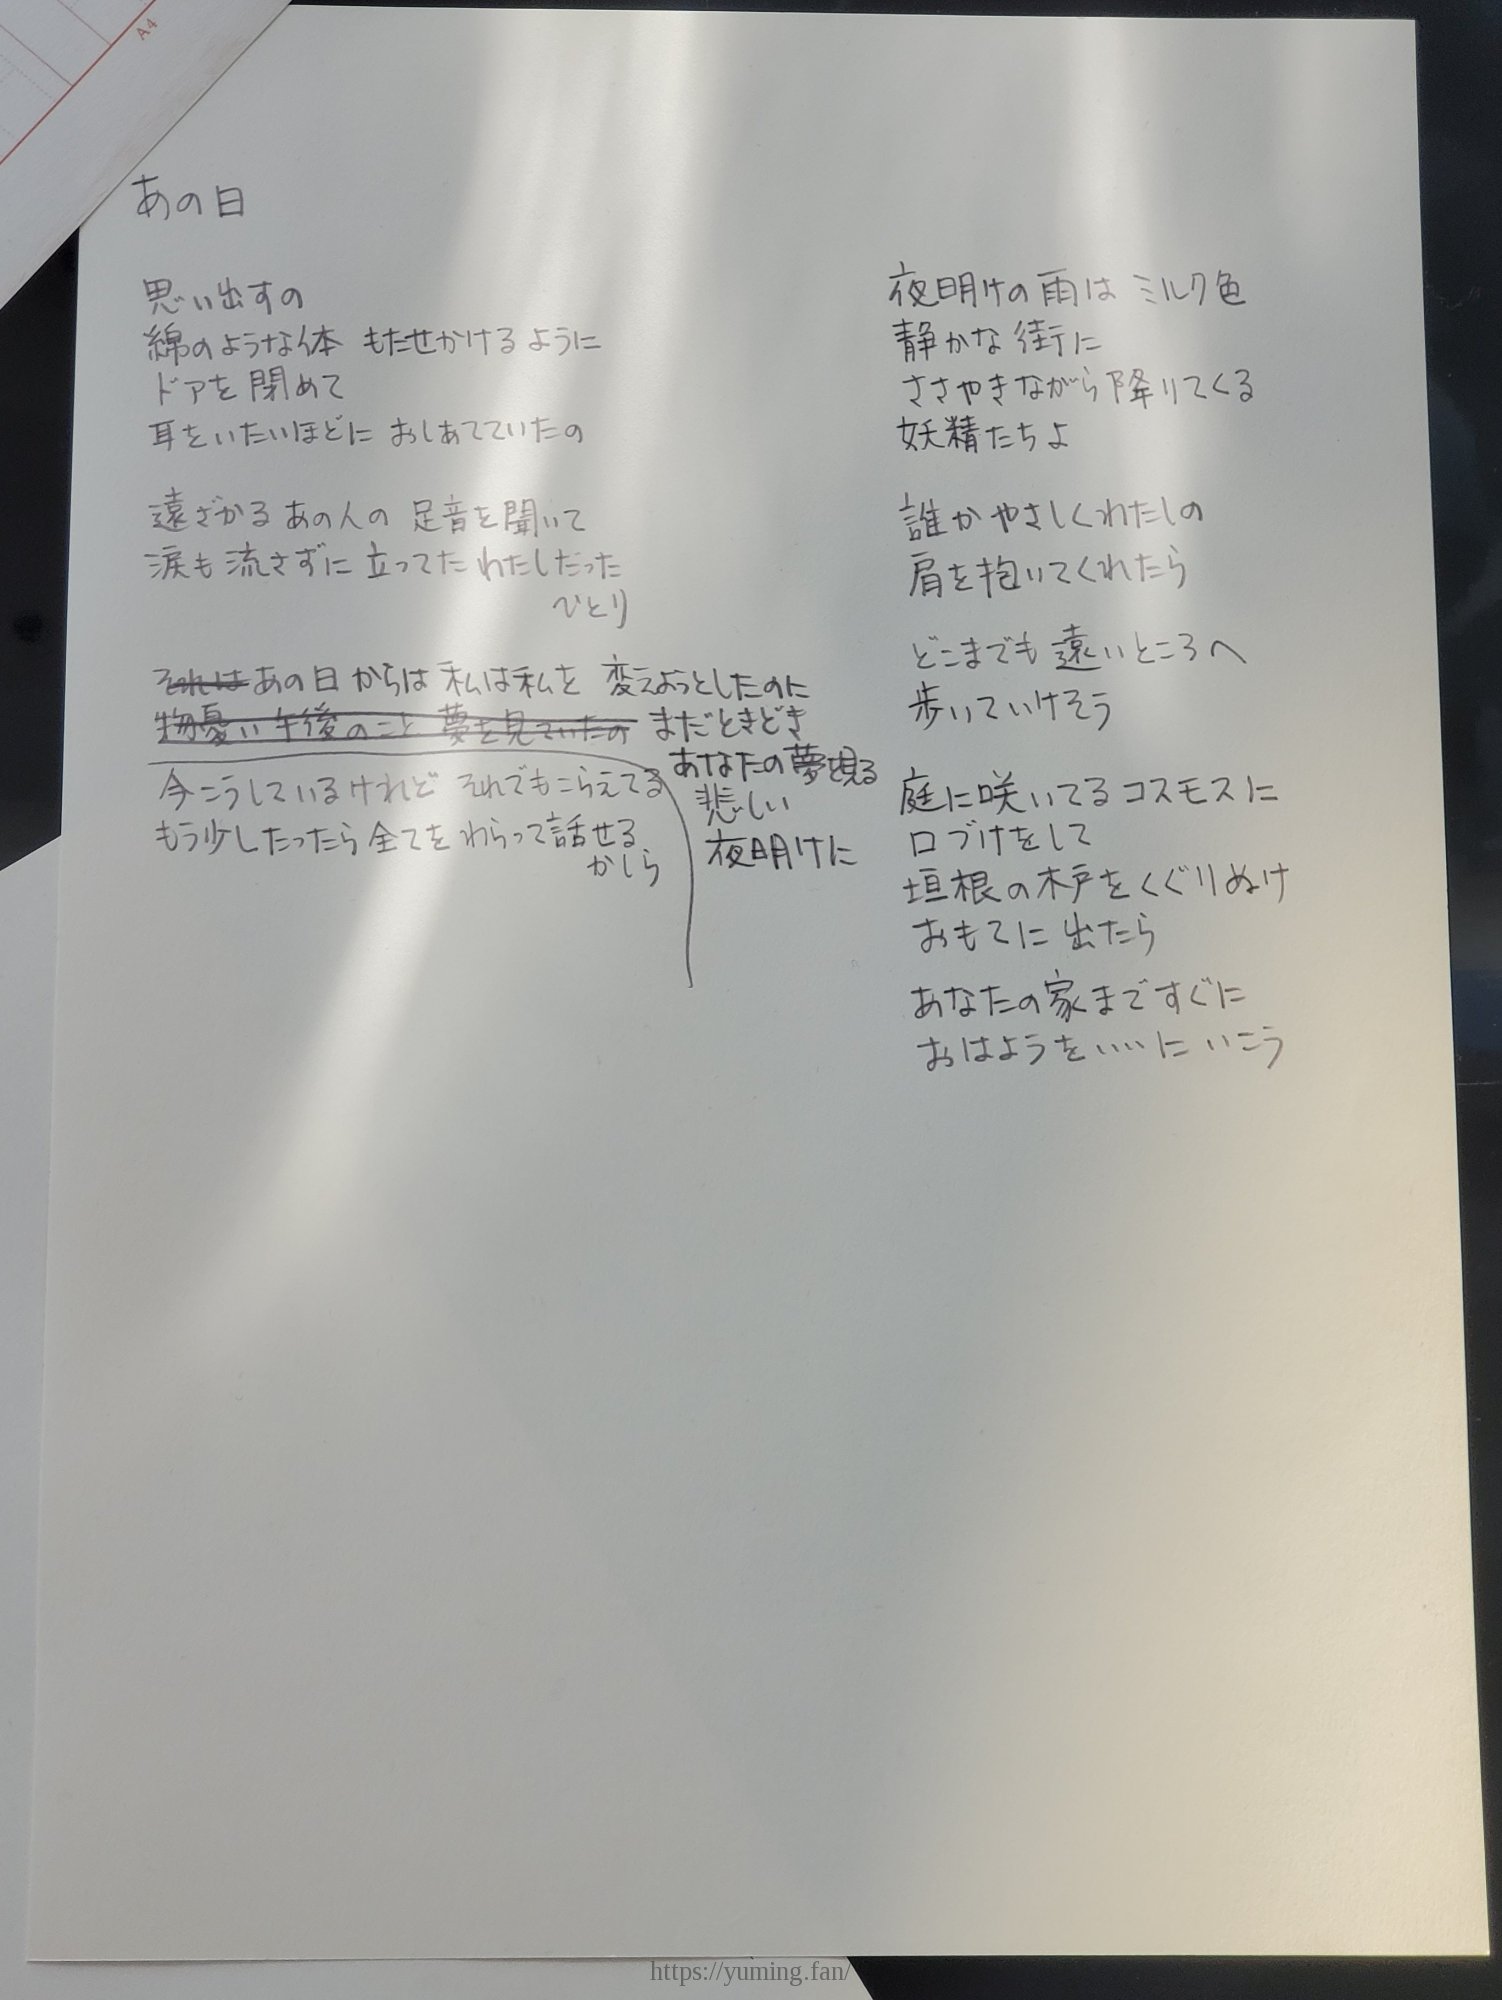 A4
あの日
思い出すの
綿のような体 もたせかけるように
ドアを閉めて
耳をいたいほどに おしあてていたの
遠ざかる あの人の 足音を聞いて
涙も流さずに 立ってた わたしだった
ひとり
それは あの日からは 私は私を 変えようとしたのに
物憂い午後のこと 夢を見ていたの まだときどき
あなたの夢を見る
悲しい
夜明けに
今こうしているけれど それでもこらえてる
もう少したったら 全てを わらって話せる
かしら
夜明けの雨は ミルク色
静かな街に
ささやきながら降りてくる
妖精たちよ
誰かやさしくわたしの
肩を抱いてくれたら
どこまでも遠いところへ
歩いていけそう
庭に咲いてるコスモスに
口づけをして
垣根の木戸をくぐりぬけ
おもてに 出たら
あなたの家まですぐに
おはようをいいに いこう
https://yuming.fan/